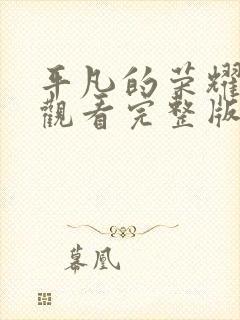 平凡的荣耀
觀看完整版
慕凰